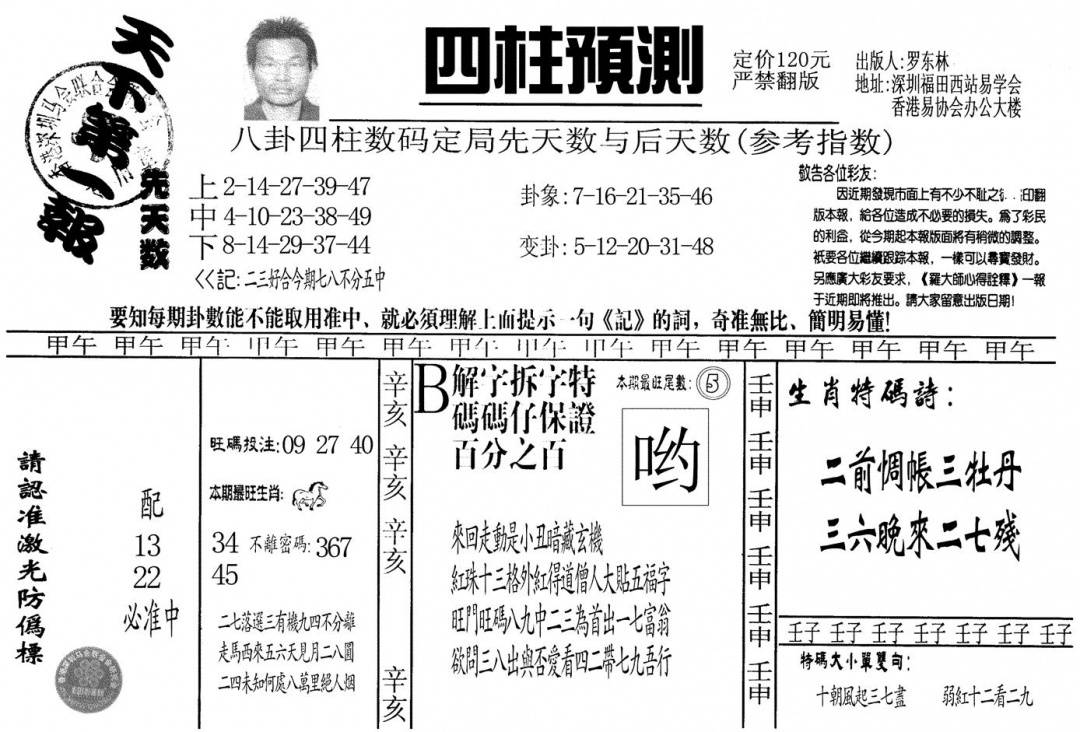 天下第一報
四柱預測
定价120元
严禁翻版
出版人:罗东林
地址:深圳福田西站易学会
香港易协会办公大楼
八卦四柱数码定局先天数与后天数(参考指数)
先天数
上 2-14-27-39-47
中 4-10-23-38-49
下 8-14-29-37-44
<<記:二三好合今期七八不分五中
卦象:7-16-21-35-46
变卦:5-12-20-31-48
敬告各位彩友:
因近期發現市面上有不少不耻之徒 印翻
版本報,給各位造成不必要的損失。爲了彩民
的利益,從今期起本報版面將有稍微的調整。
衹要各位繼續跟踪本報,一樣可以尋寶發財。
另應廣大彩友要求,《羅大師心得詮釋》一報
于近期即將推出。請大家留意出版日期!
要知每期卦數能不能取用准中、就必須理解上面提示一句《記》的詞,奇准無比、簡明易懂!
甲午 甲午 甲午 甲午 甲午 甲午 甲午 甲午 甲午 甲午 甲午 甲午 甲午 甲午 甲午
請認准激光防僞標
配
13
22
必准中
旺碼投注:09 27 40
本期最旺生肖:
34 不離密碼:367
45
二七落選三有機九四不分離
走馬西來五六天見月二八圓
二四未知何處八萬里絕人烟
辛亥
辛亥
辛亥
辛亥
B解字拆字特
碼碼仔保證
百分之百
本期最旺尾數:5
哟
來回走動是小丑暗藏玄機
紅珠十三格外紅得道僧人大貼五福字
旺門旺碼八九中二三為首出一七富翁
欲問三八出與否愛看四二帶七九吾行
壬申
壬申
壬申
壬申
壬申
壬申
生肖特碼詩:
二前惆帳三牡丹
三六晚來二七殘
壬子 壬子 壬子 壬子 壬子 壬子 壬子
特碼大小單雙句:
十朝風起三七盡 弱紅十二看二九